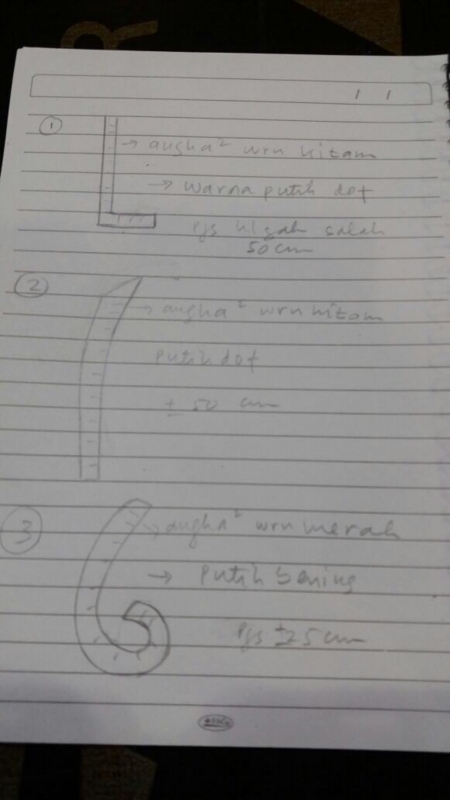 1
→ angka² wrn hitam
→ warna putih dof
pjs kl gak salah
50 cm
2
→ angka² wrn hitam
putih dof
± 50 cm
3
→ angka² wrn merah
→ putih bening
pjs ± 25 cm